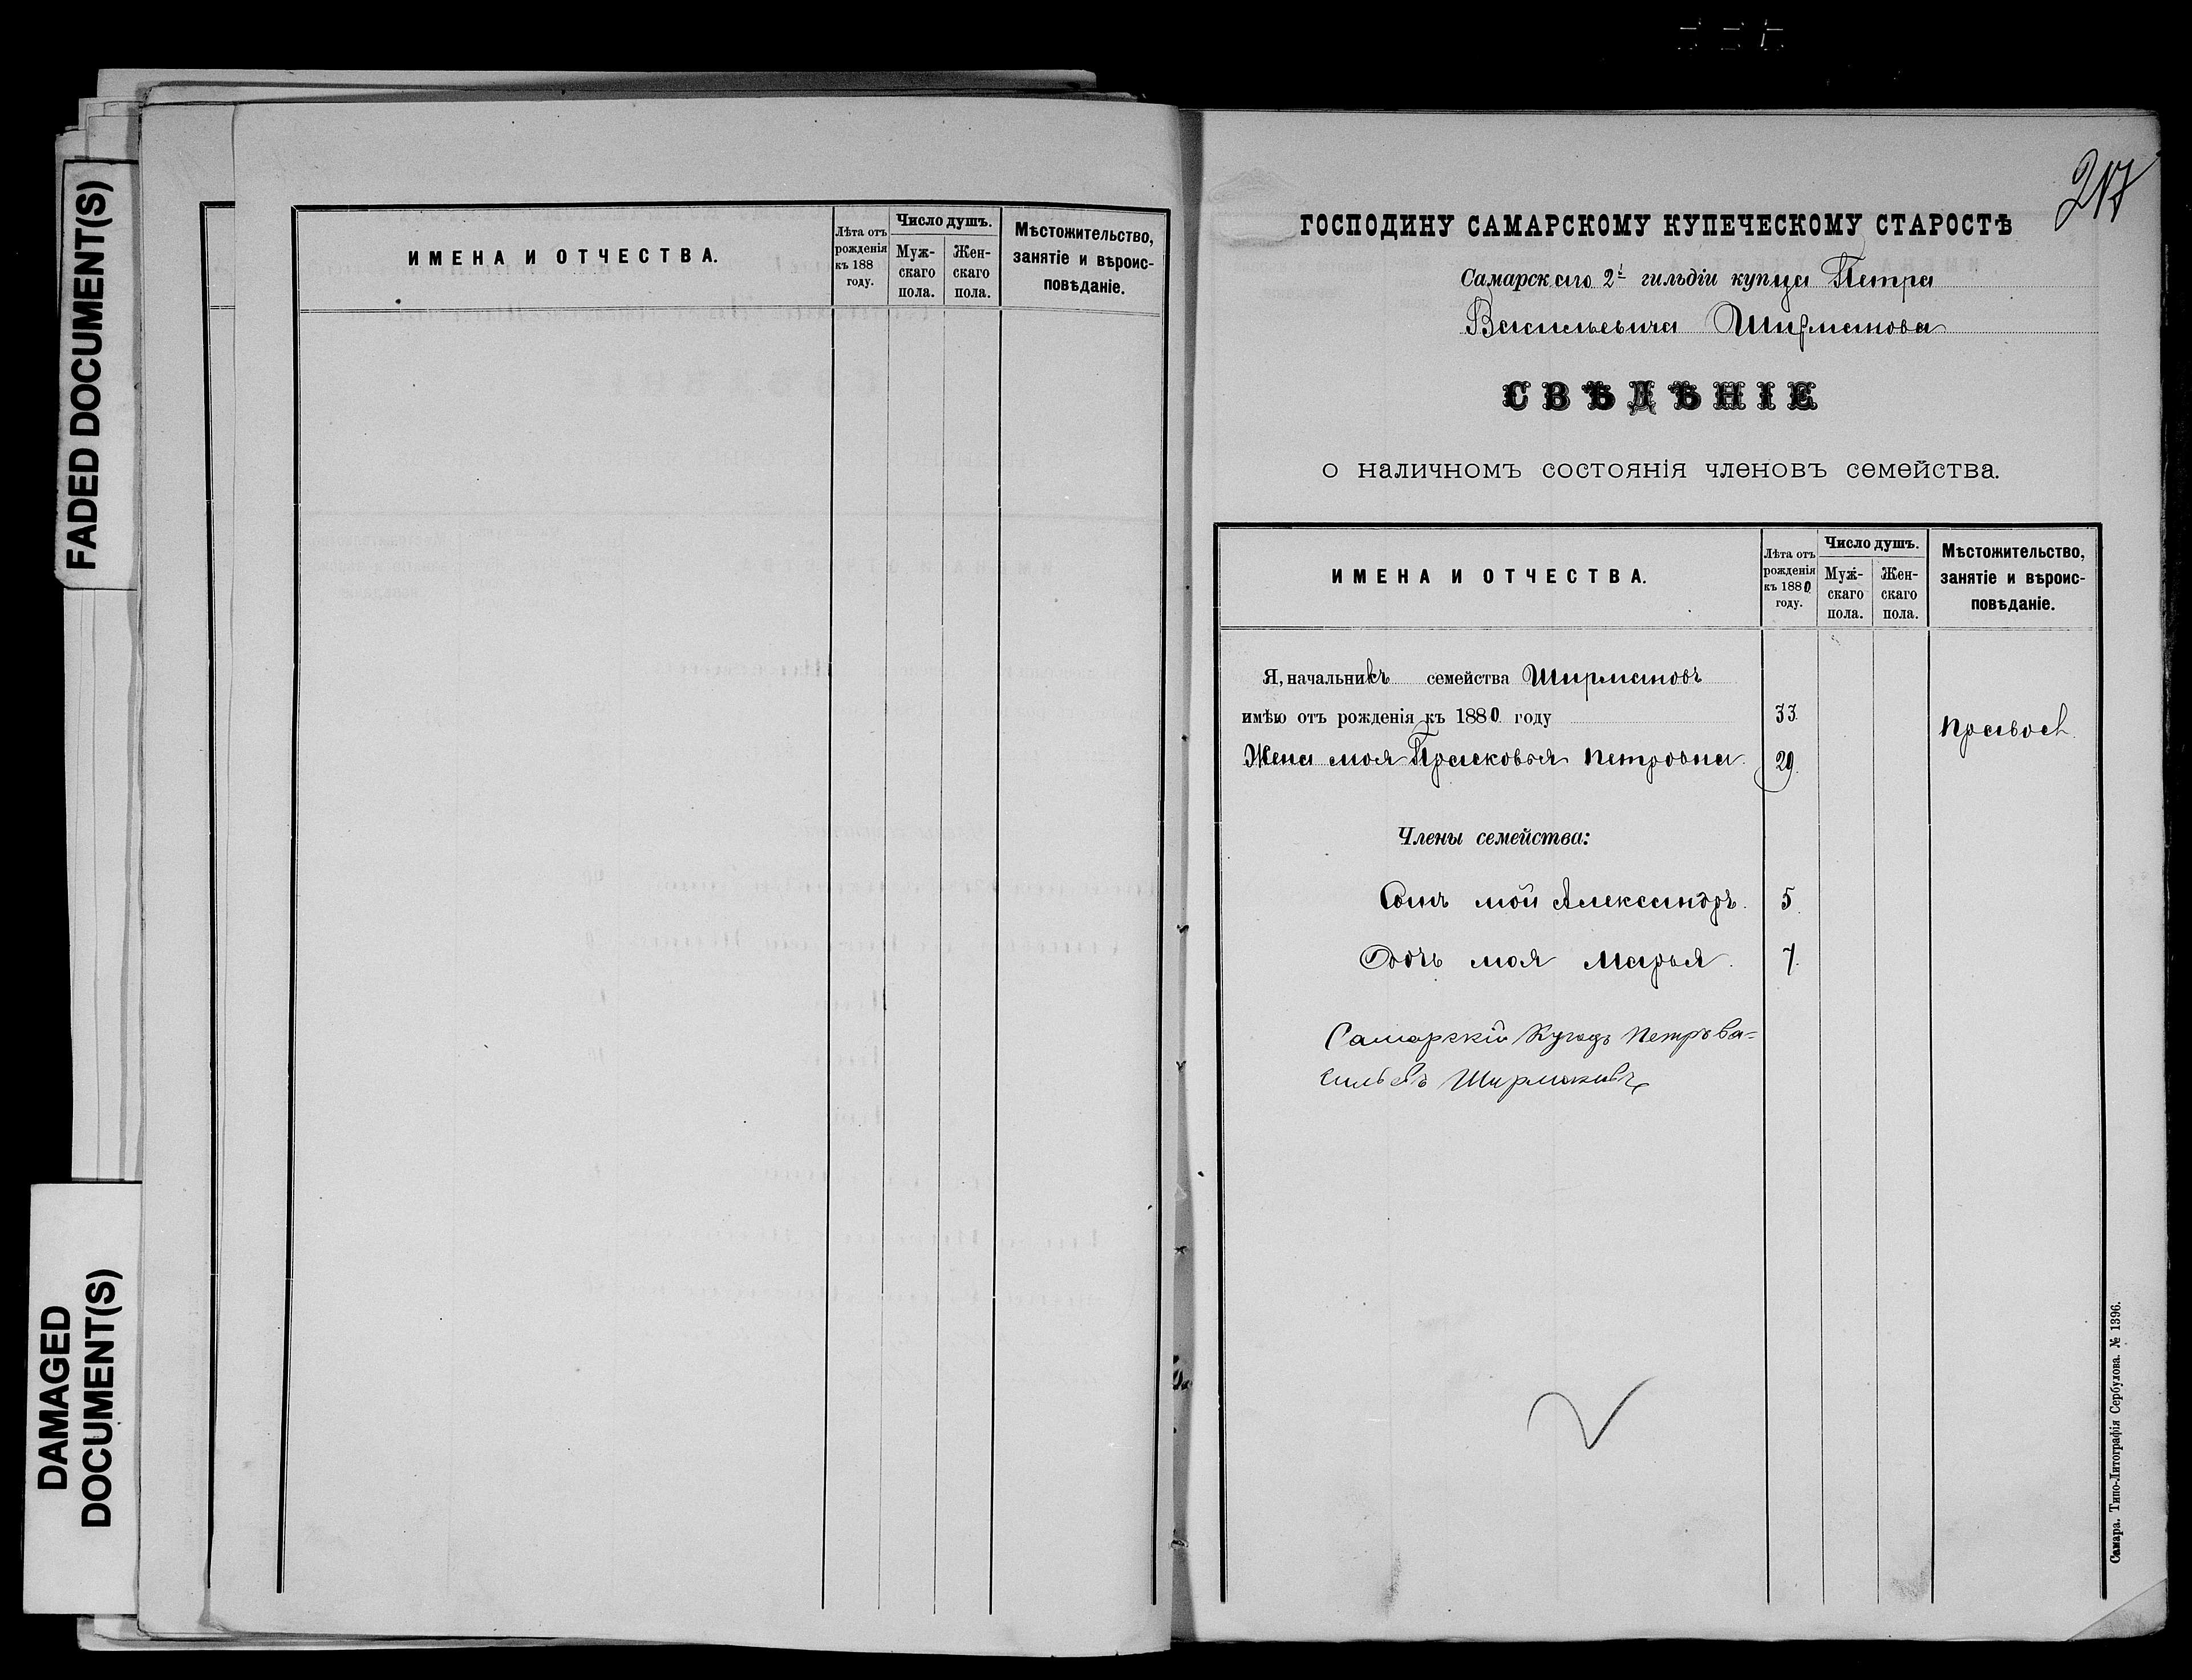 FADED DOCUMENT(S)
DAMAGED
DOCUMENT(S)
ИМЕНА И ОТЧЕСТВА.
Лѣта отъ
рожденія
къ 188
году.
Число душъ.
Муж-
скаго
пола.
Жен-
скаго
пола.
Мѣстожительство,
занятіе и вѣроис-
повѣданіе.
217
ГОСПОДИНУ САМАРСКОМУ КУПЕЧЕСКОМУ СТАРОСТѢ
Самарскаго 2й гильдіи купца Петра
Васильевича Ширманова
СВѢДѢНІЕ
о наличномъ состоянія членовъ семейства.
ИМЕНА И ОТЧЕСТВА.
Лѣта отъ
рожденія
къ 1880
году.
Число душъ.
Муж-
скаго
пола.
Жен-
скаго
пола.
Мѣстожительство,
занятіе и вѣроис-
повѣданіе.
Я, начальникъ семейства Ширмановъ
имѣю отъ рожденія къ 1880 году 33.
Правосл.
Жена моя Прасковья Петровна. 29.
Члены семейства:
Сынъ мой Александръ. 5.
Дочь моя Марья. 7.
Самарскій Купецъ Петръ Ва-
сильевъ Ширмановъ
Самара. Типо-Литографія Сербулова. № 1396.